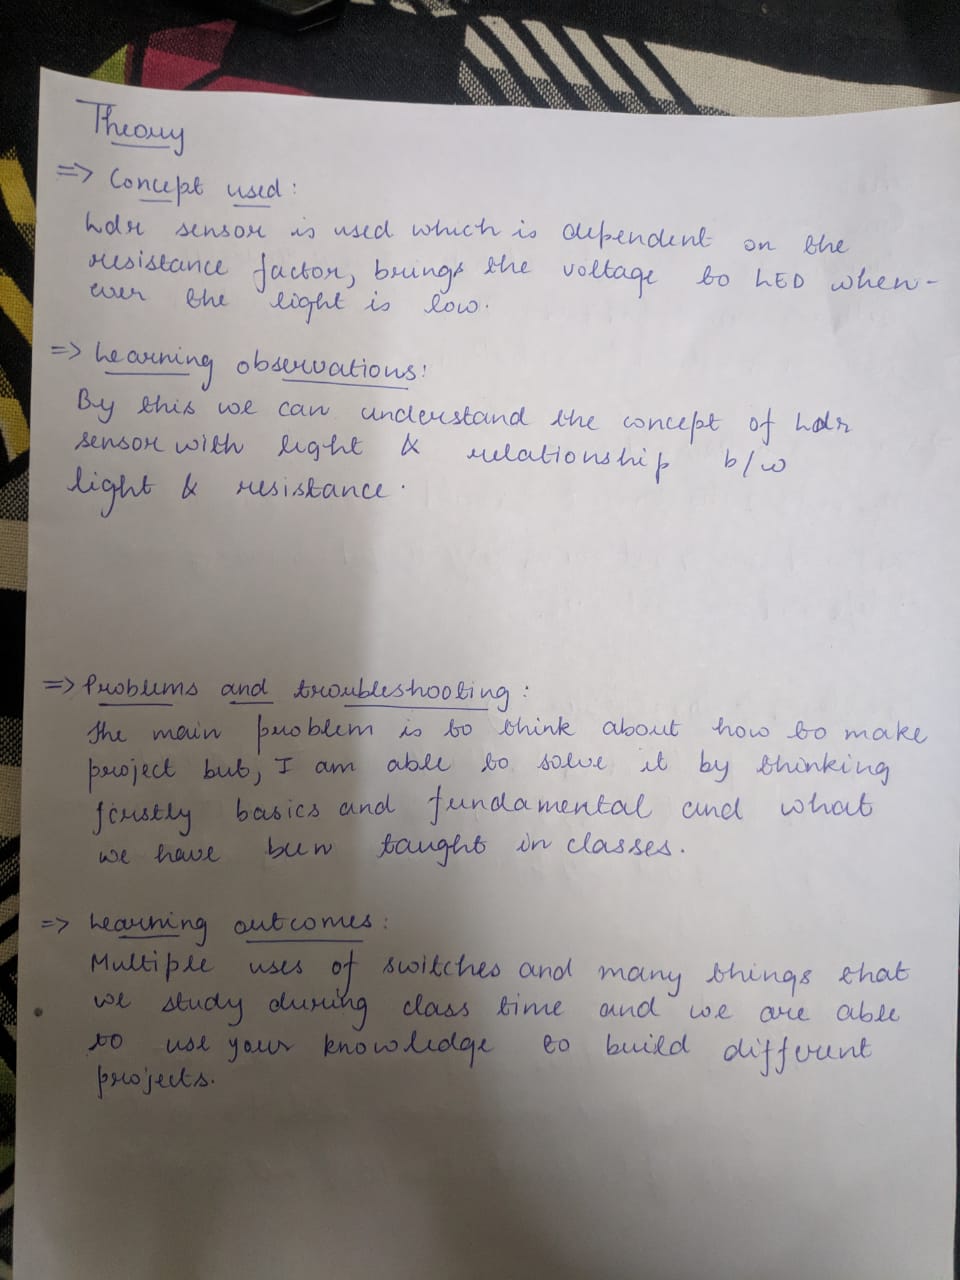 Theory
=> Concept used:
Ldr sensor is used which is dependent on the
resistance factor, brings the voltage to LED when-
ever the light is low.
=> Learning observations:
By this we can understand the concept of Ldr
sensor with light & relationship b/w
light & resistance.
=> Problems and troubleshooting:
The main problem is to think about how to make
project but, I am able to solve it by thinking
firstly basics and fundamental and what
we have been taught in classes.
=> Learning outcomes:
Multiple uses of switches and many things that
we study during class time and we are able
to use your knowledge to build different
projects.